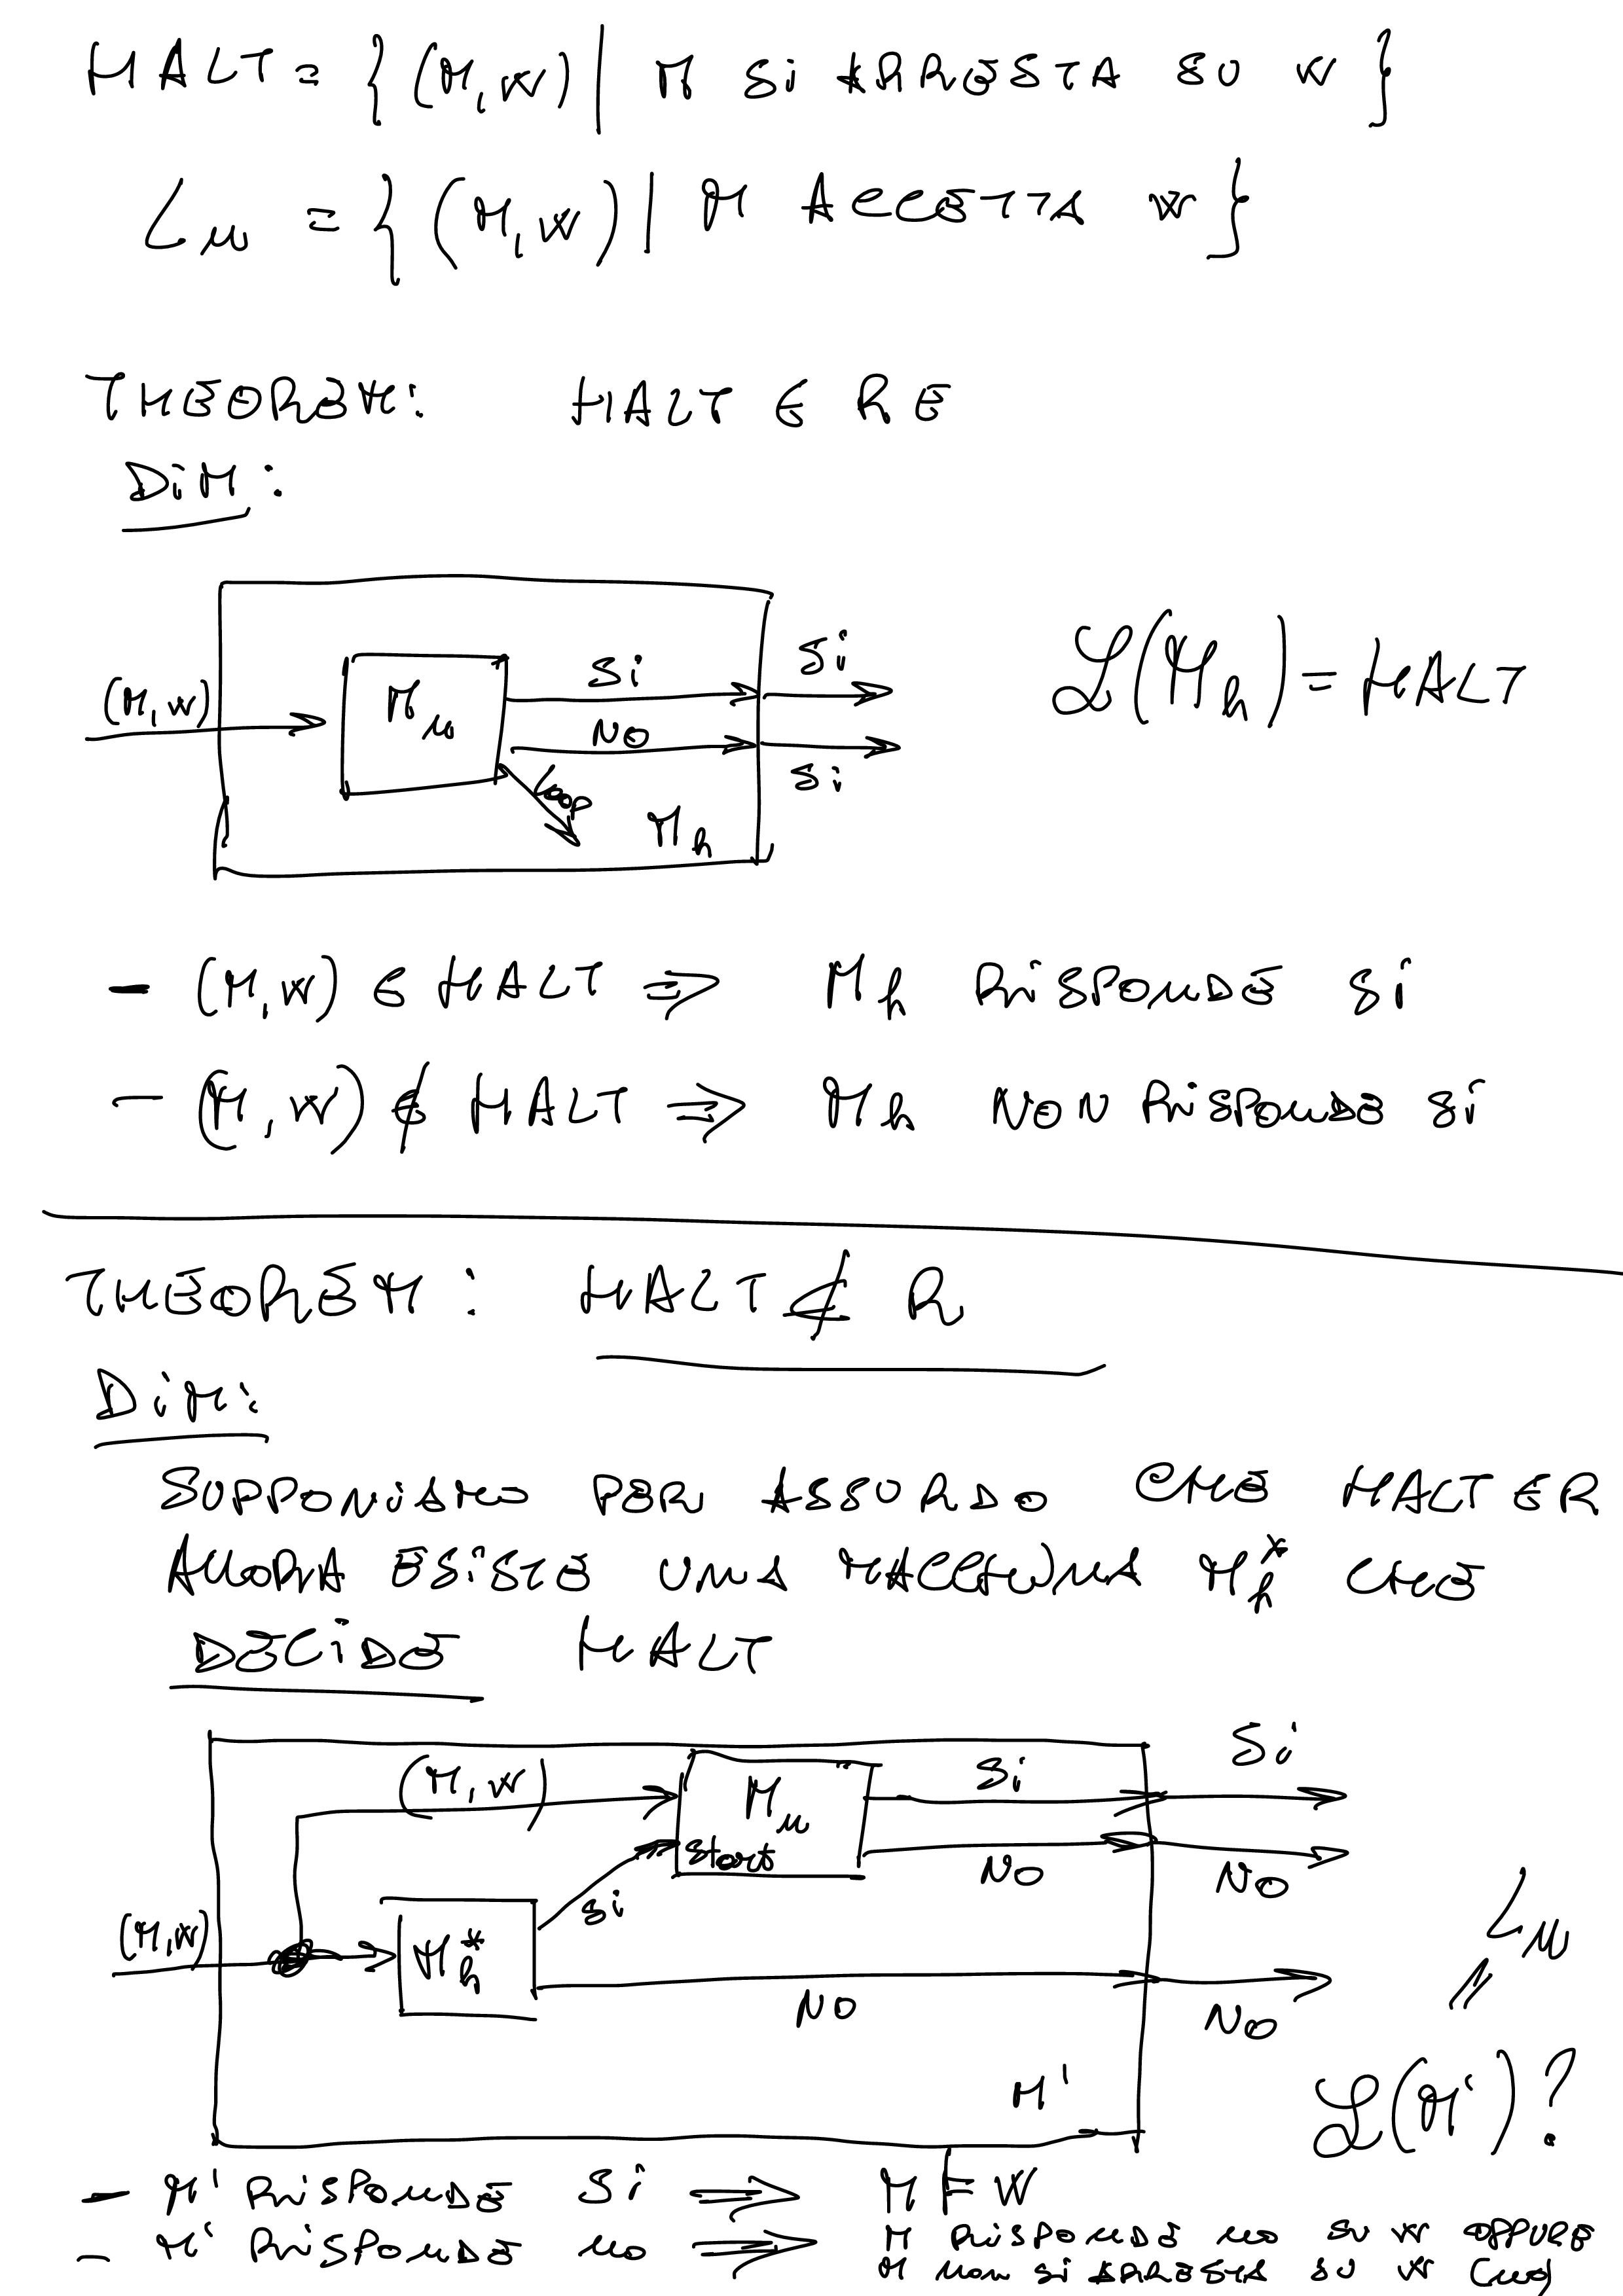 HALT = { (M, W) | M Si ARRESTA SU W }
Lu = { (M, W) | M ACCETTA W }
THEOREM: HALT ∈ RE
DiM:
(M, W)
Mu
Si
NO
loop
Mh
Si
Si
L(Mh) = HALT
- (M, W) ∈ HALT ⇒ Mh RiSPONDE Si
- (M, W) ∉ HALT ⇒ Mh NON RiSPONDE Si
THEOREM: HALT ∉ R
DiM:
SUPPONiAMO PER ASSURDO CHE HALT ∈ R
ALLORA ESiSTE UNA MACCHiNA Mh* CHE
DECiDE HALT
(M, W)
(M, W)
Mu
start
Si
NO
Mh*
Si
NO
M'
Si
NO
NO
Lu
=
L(M')?
- M' RiSPONDE Si ⇒ M ⊨ W
- M' RiSPONDE NO ⇒ M RiSPONDE NO SU W OPPURE
M NON Si ARRESTA SU W